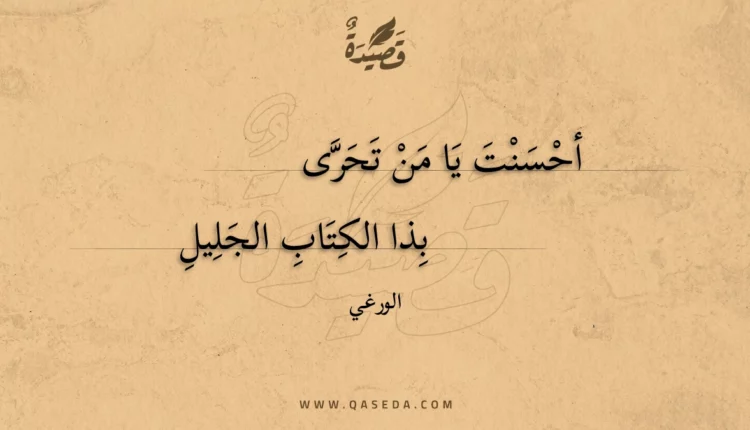 قَصِيدَةٌ
أحْسَنْتَ يَا مَنْ تَحَرَّى
بِذا الكِتَابِ الجَلِيلِ
الورغي
WWW.QASEDA.COM